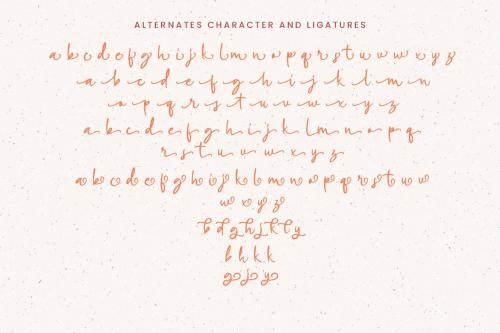 ALTERNATES CHARACTER AND LIGATURES
a b c d e f g h i j k l m n o p q r s t u v w x y z
a b c d e f g h i j k l m n
o p q r s t u v w x y z
a b c d e f g h i j k l m n o p q
r s t u v w x y z
a b c d e f g h i j k l m n o p q r s t u v
w x y z
b d g h j k l y
b h k k
g j y